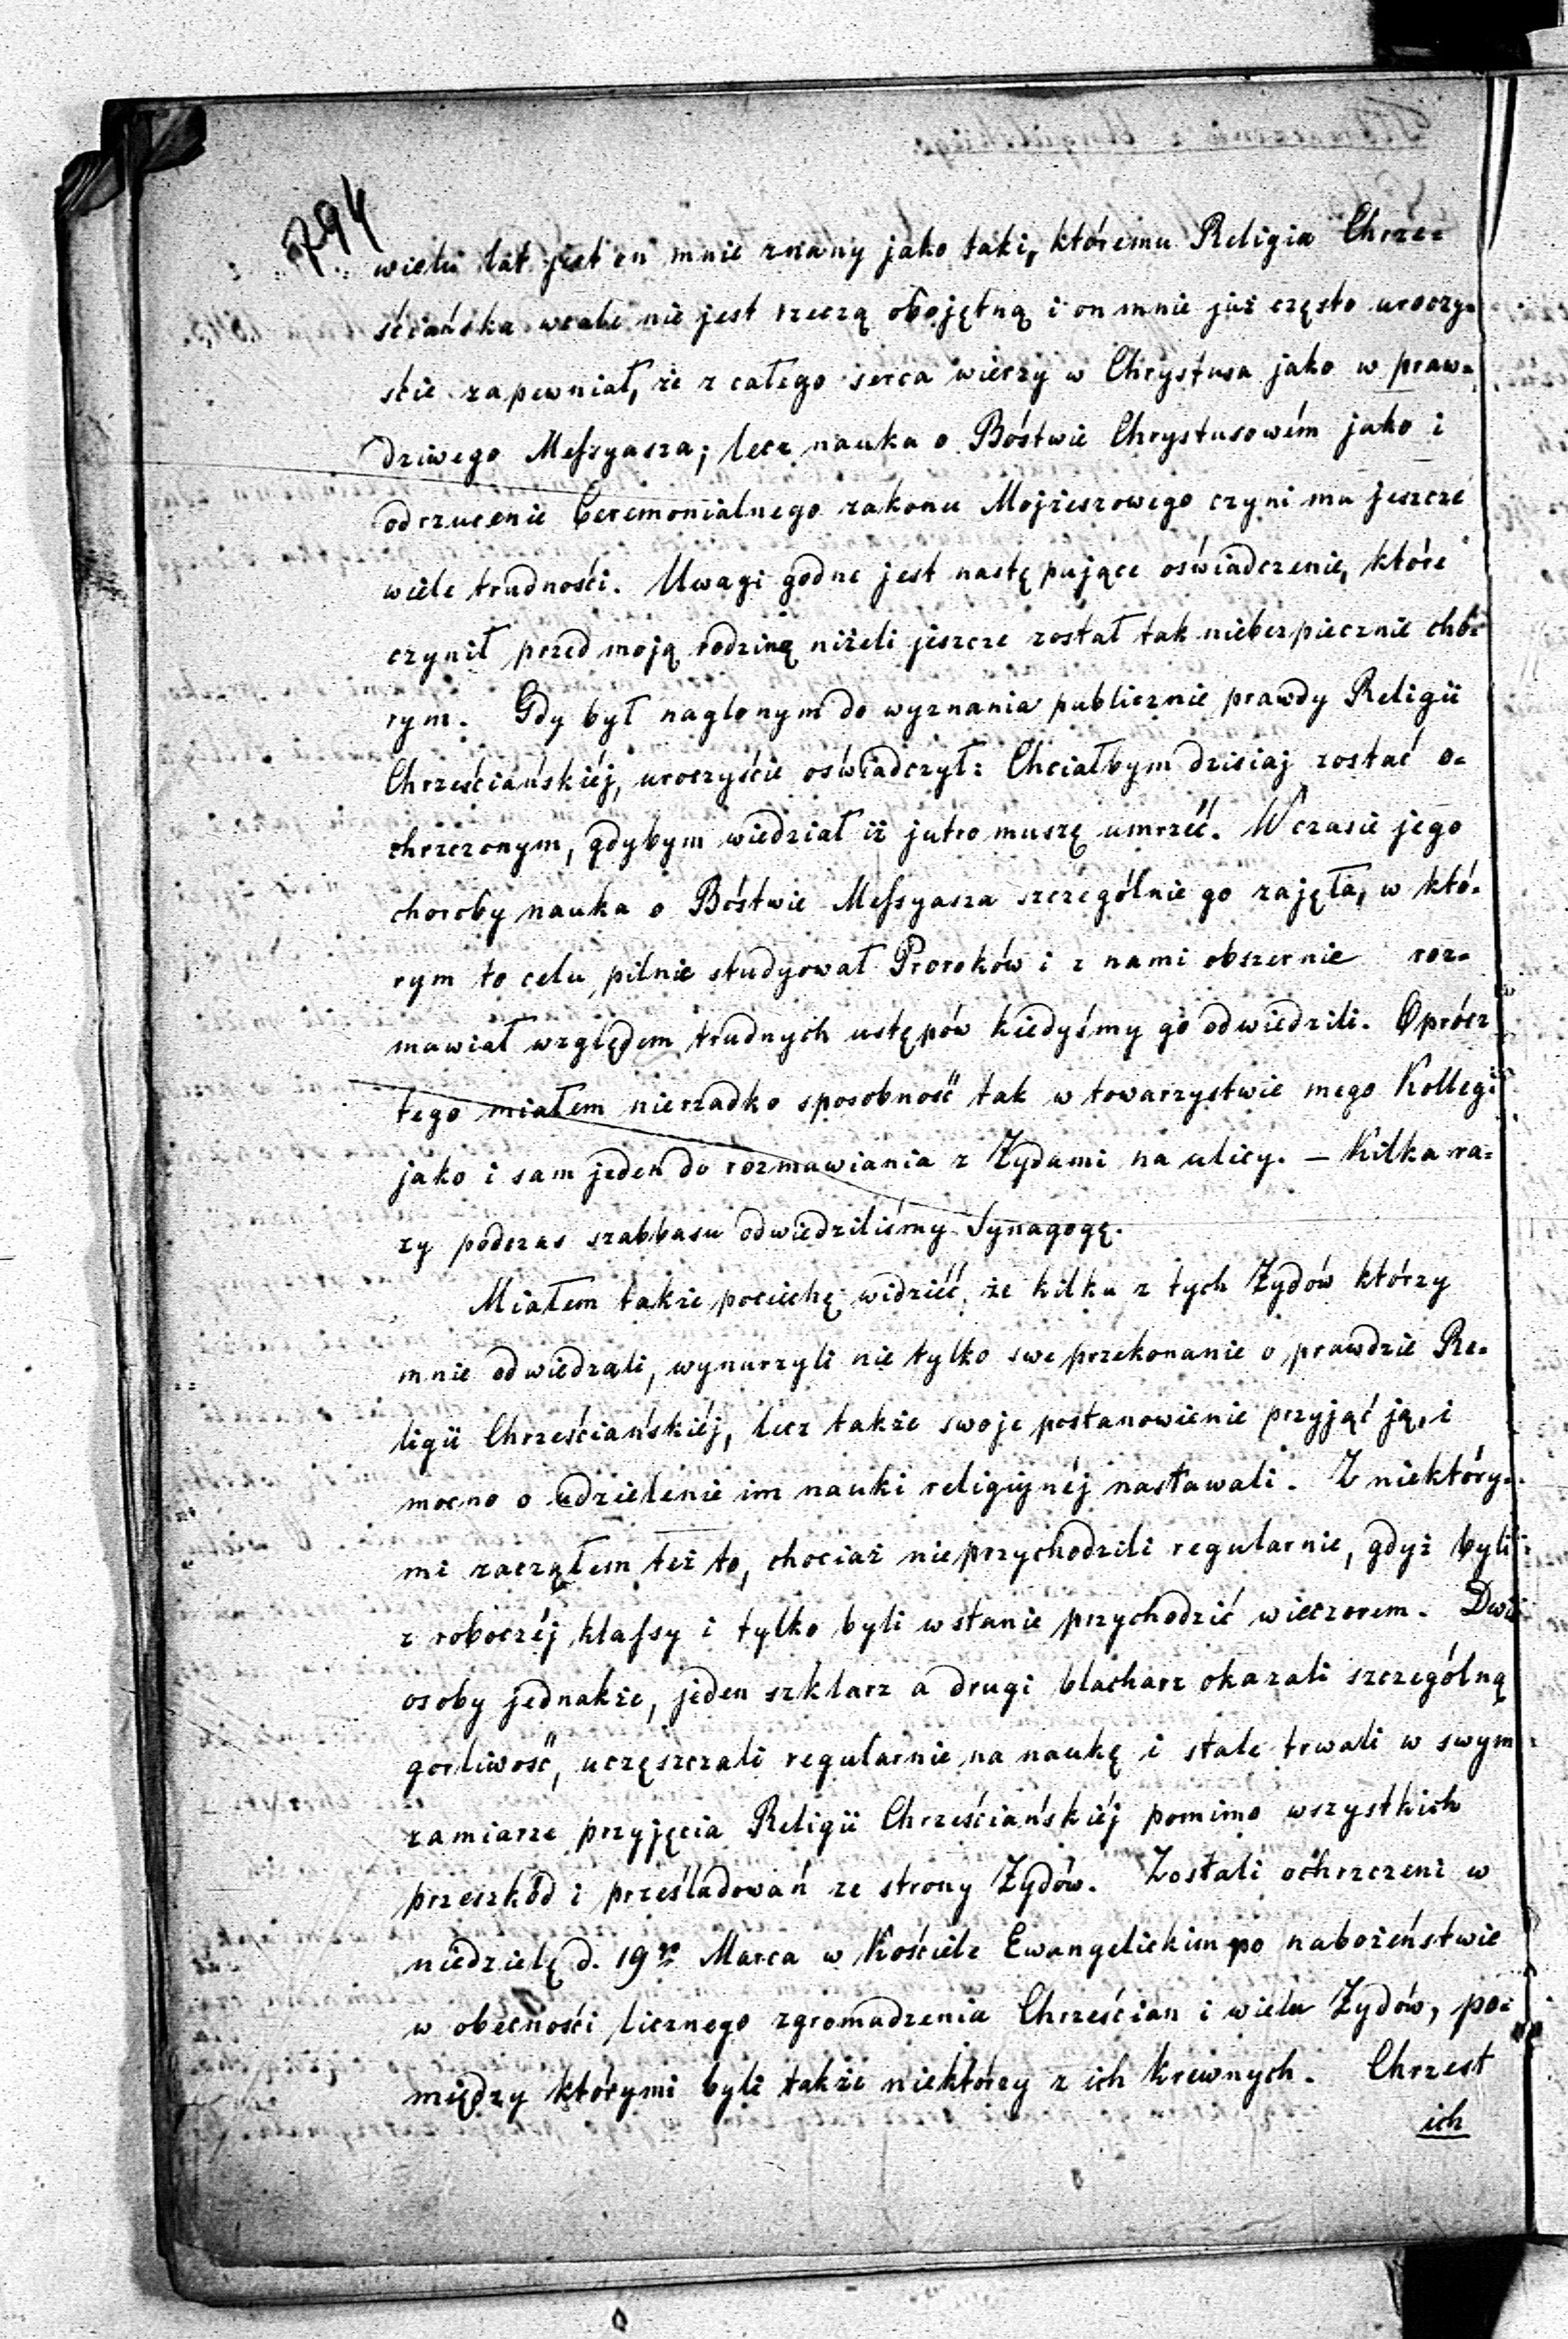 794
wielu lat jest on mnie znany jako taki, któremu Religia Chrze=
ściańska wcale nie jest rzeczą obojętną i on mnie już często uroczy=
ście zapewniał, że z całego serca wierzy w Chrystusa jako w praw=
dziwego Messyasza; lecz nauka o Bóstwie Chrystusowém jako i
odrzucenie Ceremonialnego zakonu Mojżeszowego czyni mu jeszcze
wiele trudności. Uwagi godne jest następujące oświadczenie, które
czynił przed moją rodziną niżeli jeszcze został tak niebezpiecznie cho=
rym. Gdy był naglonym do wyznania publicznie prawdy Religii
Chrześciańskiéj, uroczyście oświadczył: Chciałbym dzisiaj zostać o=
chrzczonym, gdybym wiedział iż jutro muszę umrzéć. W czasie jego
choroby nauka o Bóstwie Messyasza szczególnie go zajęła, w któ=
rym to celu pilnie studyował Proroków i z nami obszernie roz=
mawiał względem trudnych ustępów kiedyśmy go odwiedzili. Oprócz
tego miałem nierzadko sposobność tak w towarzystwie mego Kollegi
jako i sam jeden do rozmawiania z Żydami na ulicy. – Kilka ra=
zy podczas szabbasu odwiedziliśmy Synagogę.
Miałem także pociechę widziéć, że kilku z tych Żydów którzy
mnie odwiedzali, wynurzyli nie tylko swe przekonanie o prawdzie Re=
ligii Chrześciańskiéj, lecz także swoje postanowienie przyjąć ją, i
mocno o udzielenie im nauki religiynéj nastawali. Z niektóry=
mi zacząłem też to, chociaż nie przychodzili regularnie, gdyż byli
z roboczéj klassy i tylko byli w stanie przychodzić wieczorem. Dwie
osoby jednakże, jeden szklarz a drugi blacharz okazali szczególną
gorliwość, uczęszczali regularnie na naukę i stale trwali w swym
zamiarze przyjęcia Religii Chrześciańskiéj pomimo wszystkich
przeszkód i prześladowań ze strony Żydów. Zostali ochrzczeni w
niedzielę d. 19go Marca w Kościele Ewangelickim po nabożeństwie
w obecności licznego zgromadzenia Chrześcian i wielu Żydów, po=
między którymi byli także niektórzy z ich krewnych. Chrzest
ich